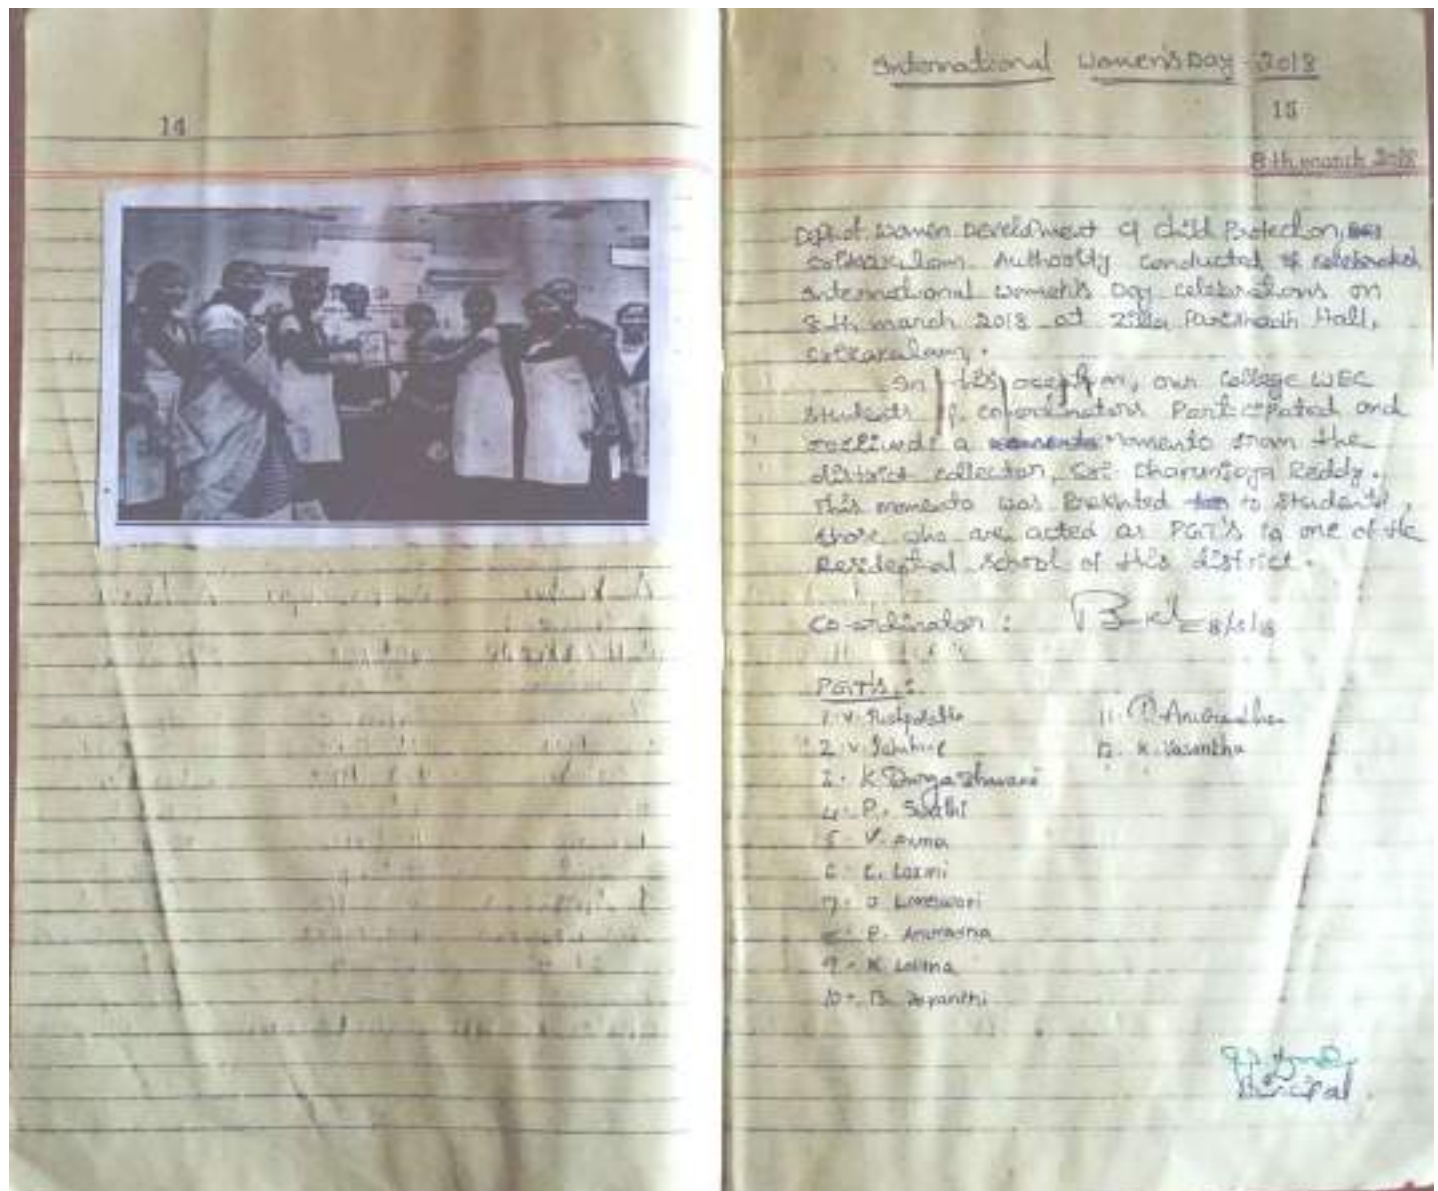 14
International Women's Day - 2018
15
8th march 2018
Dept of Women Development & Child Protection,
Authority conducted & celebrated
International women's Day celebrations on
8th march 2018 at Zilla Parishadh Hall,
In this our College WEC
students & co-ordinators Participated and
a momento from the
district collector, Sri Dhanunjaya Reddy.
This momento was to students,
those who are acted as PGT's in one of the
Residential school of this district.
Co-ordinator : 8/3/18
PGT's :
1. V. Pushpalatha
2. V.
3. K Durga Bhavani
4. P. Swathi
5. V.
6. Laxmi
7.
P.
9. K.
10. B. Jayanthi
11. Anuradha
12. K. Vasantha
Principal